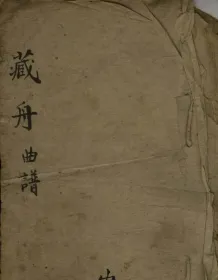 藏舟曲譜